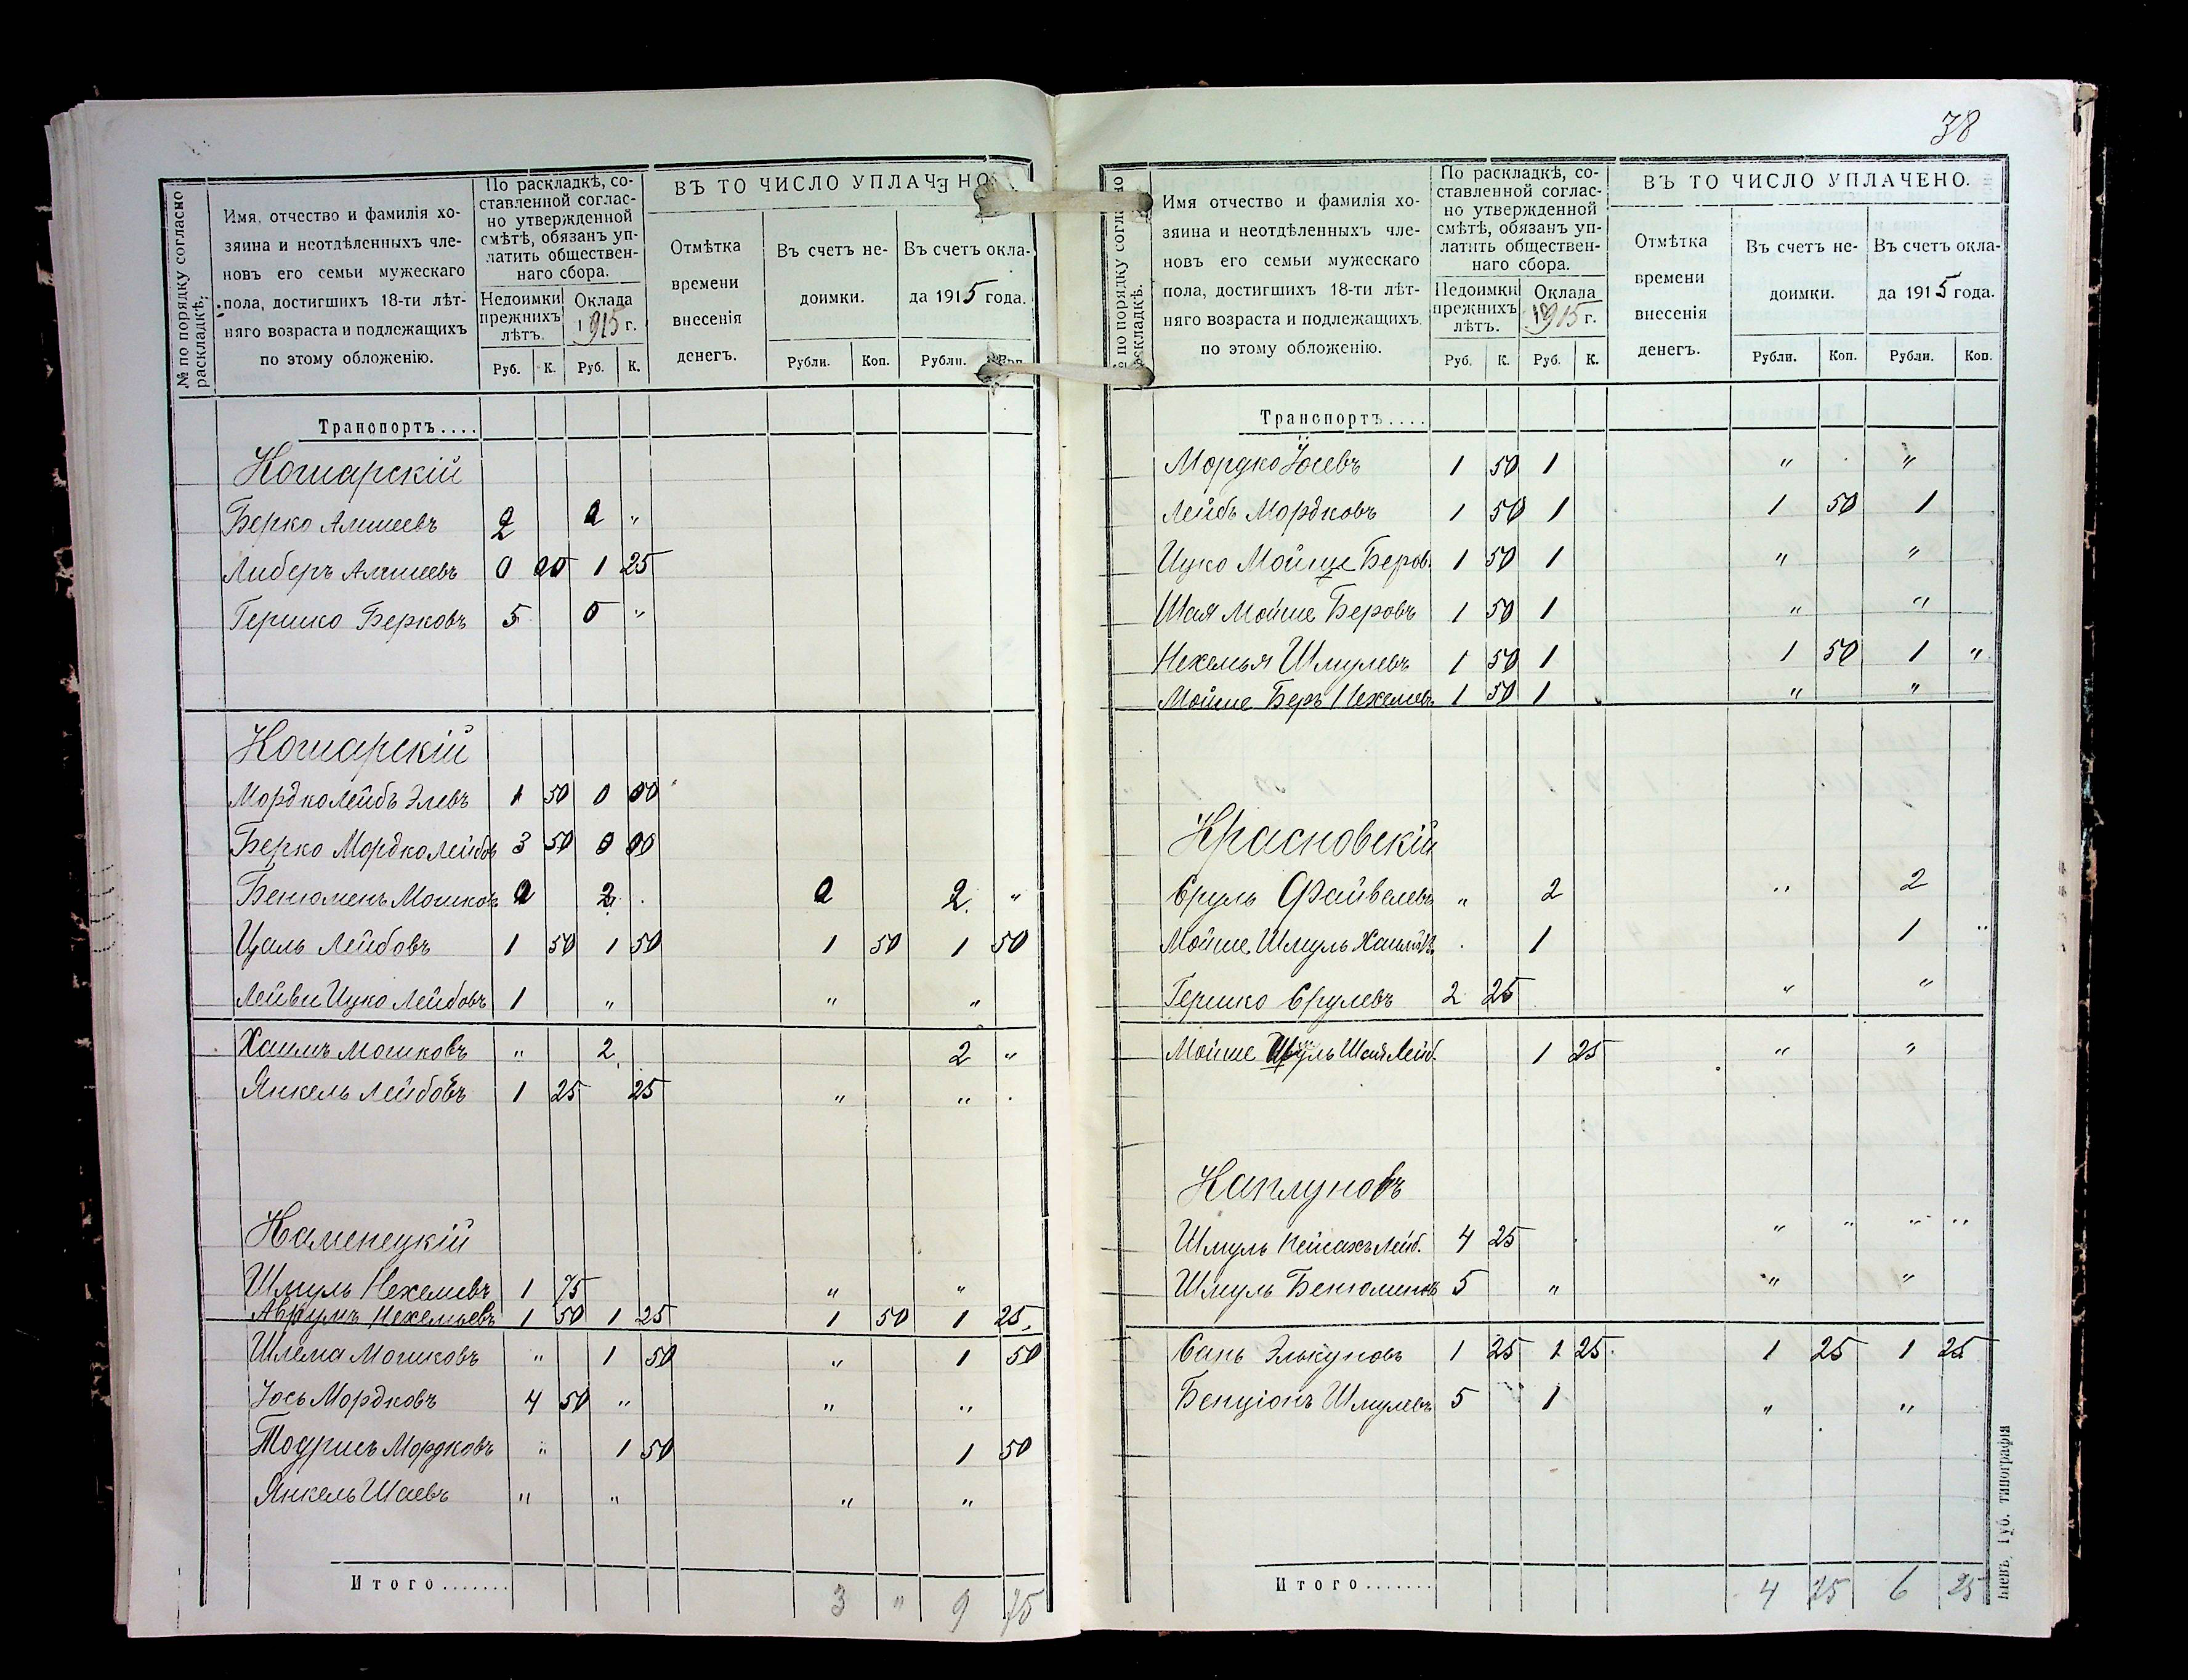 38
№ по порядку согласно раскладкѣ.
Имя, отчество и фамилія хо-
зяина и неотдѣленныхъ чле-
новъ его семьи мужескаго
пола, достигшихъ 18-ти лѣт-
няго возраста и подлежащихъ
по этому обложенію.
По раскладкѣ, со-
ставленной соглас-
но утвержденной
смѣтѣ, обязанъ уп-
латить обществен-
наго сбора.
Недоимки
прежнихъ
лѣтъ.
Оклада
1915 г.
Руб. К. Руб. К.
ВЪ ТО ЧИСЛО УПЛАЧЕНО
Отмѣтка
времени
внесенія
денегъ.
Въ счетъ не-
доимки.
Въ счетъ окла-
да 1915 года.
Рубли. Коп. Рубли. Коп.
Транспортъ....
Кошарскій
Берко Алшеевъ 2 2 "
Либеръ Алшеевъ 0 00 1 25
Гершко Берковъ 5 0 "
Кошарскій
Мордко Лейбъ Элевъ 1 50 0 00
Берко Мордколейбов 3 50 0 00
Бенюменъ Мошковъ 2 2 2 2 "
Цаль Лейбовъ 1 50 1 50 1 50 1 50
Лейви Ицко Лейбовъ 1 " " "
Хаимъ Мошковъ " 2 2 "
Янкель Лейбовъ 1 25 25 " "
Каменецкій
Шмуль Нехемьевъ 1 75 " "
Аврумъ Нехемьевъ 1 50 1 25 1 50 1 25
Шлема Мошковъ " 1 50 " 1 50
Іось Мордковъ 4 50 " " "
Тодрисъ Мордковъ " 1 50 1 50
Янкель Шаевъ " " " "
Итого....... 3 " 9 75
№ по порядку согласно раскладкѣ.
Имя отчество и фамилія хо-
зяина и неотдѣленныхъ чле-
новъ его семьи мужескаго
пола, достигшихъ 18-ти лѣт-
няго возраста и подлежащихъ
по этому обложенію.
По раскладкѣ, со-
ставленной соглас-
но утвержденной
смѣтѣ, обязанъ уп-
латить обществен-
наго сбора.
Недоимки
прежнихъ
лѣтъ.
Оклада
1915 г.
Руб. К. Руб. К.
ВЪ ТО ЧИСЛО УПЛАЧЕНО.
Отмѣтка
времени
внесенія
денегъ.
Въ счетъ не-
доимки.
Въ счетъ окла-
да 1915 года.
Рубли. Коп. Рубли. Коп.
Транспортъ....
Мордко Іосевъ 1 50 1 " "
Лейбъ Мордковъ 1 50 1 1 50 1
Ицко Мойше Беров. 1 50 1 " "
Шая Мойше Беровъ 1 50 1 " "
Нехемья Шмулевъ 1 50 1 1 50 1 "
Мойше Беръ Нехемьев 1 50 1 " "
Красновскій
Сруль Файвелевъ " 2 " 2
Мойше Шмуль Хаимов. 1 1 "
Гершко Срулевъ 2 25 " "
Мойше Шая Лейб. 1 25 " "
Каплуновъ
Шмуль Пейсахъ Лейб. 4 25 " " " "
Шмуль Бенюминов 5 " " "
Сань Элькуновъ 1 25 1 25 1 25 1 25
Бенціонъ Шмулевъ 5 1 " "
Итого....... 4 25 6 25
Кіевъ, Губ. типографія